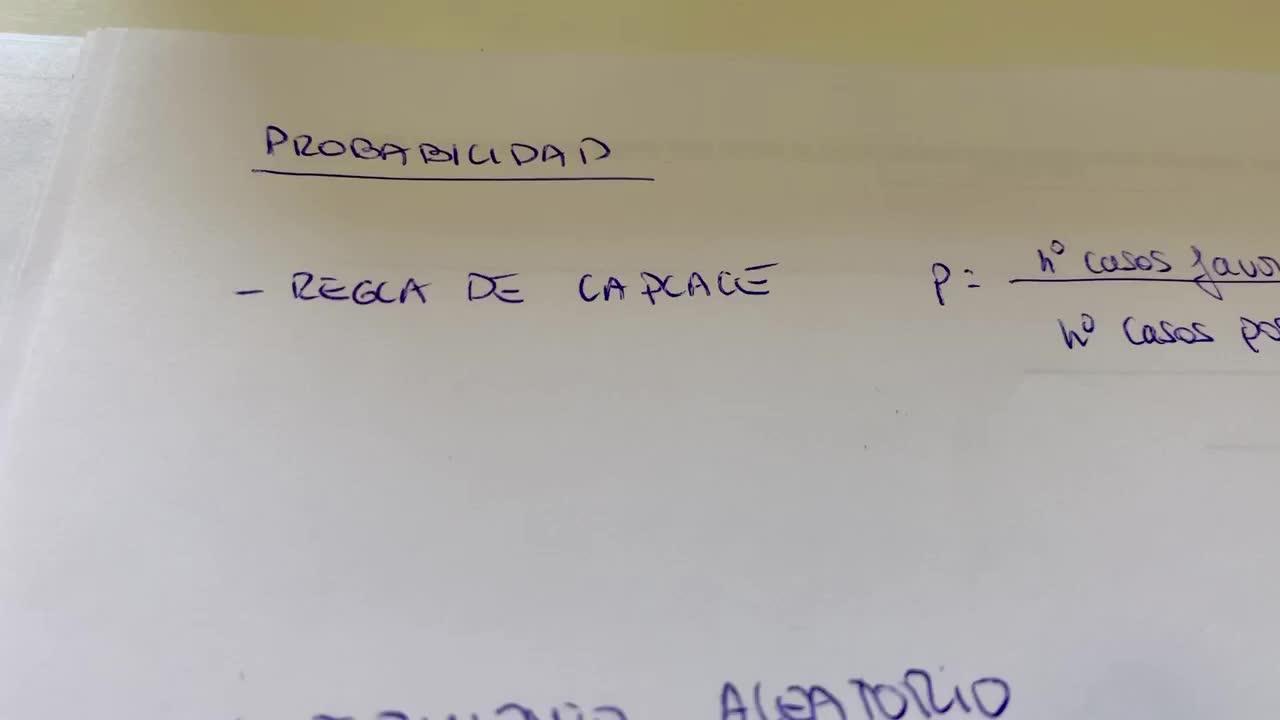 PROBABILIDAD
- REGLA DE LAPLACE P= nº casos favor
nº casos pos
ALEATORIO